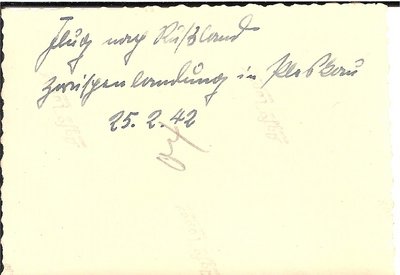 Flug nach Rußland
Zwischenlandung in Pleskau
25. 2. 42